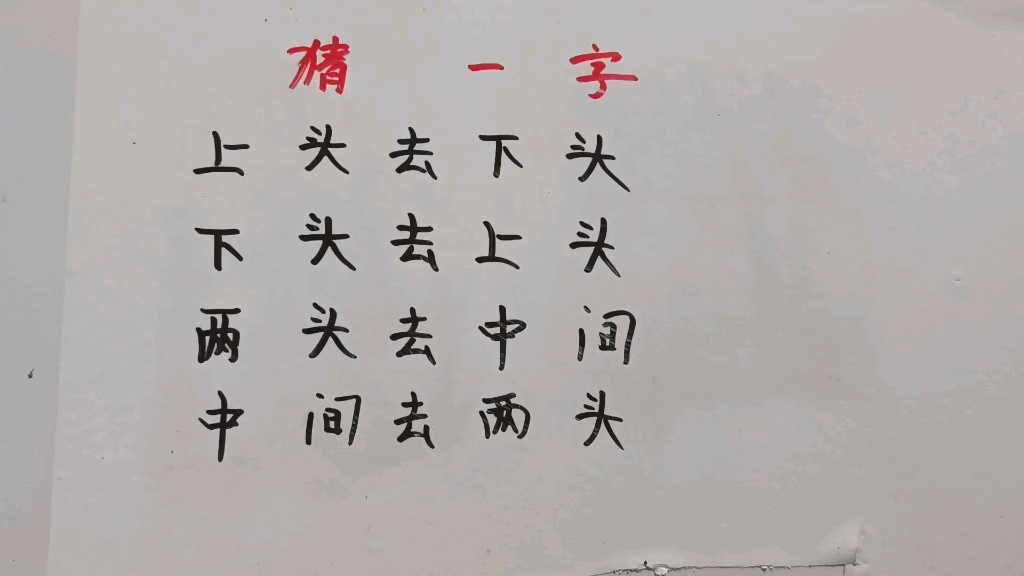 猜一字
上头去下头
下头去上头
两头去中间
中间去两头